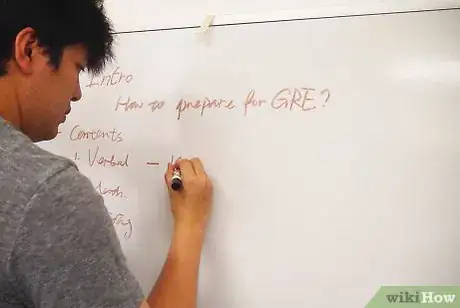 Intro
How to prepare for GRE?
- Contents
1. Verbal -
wikiHow